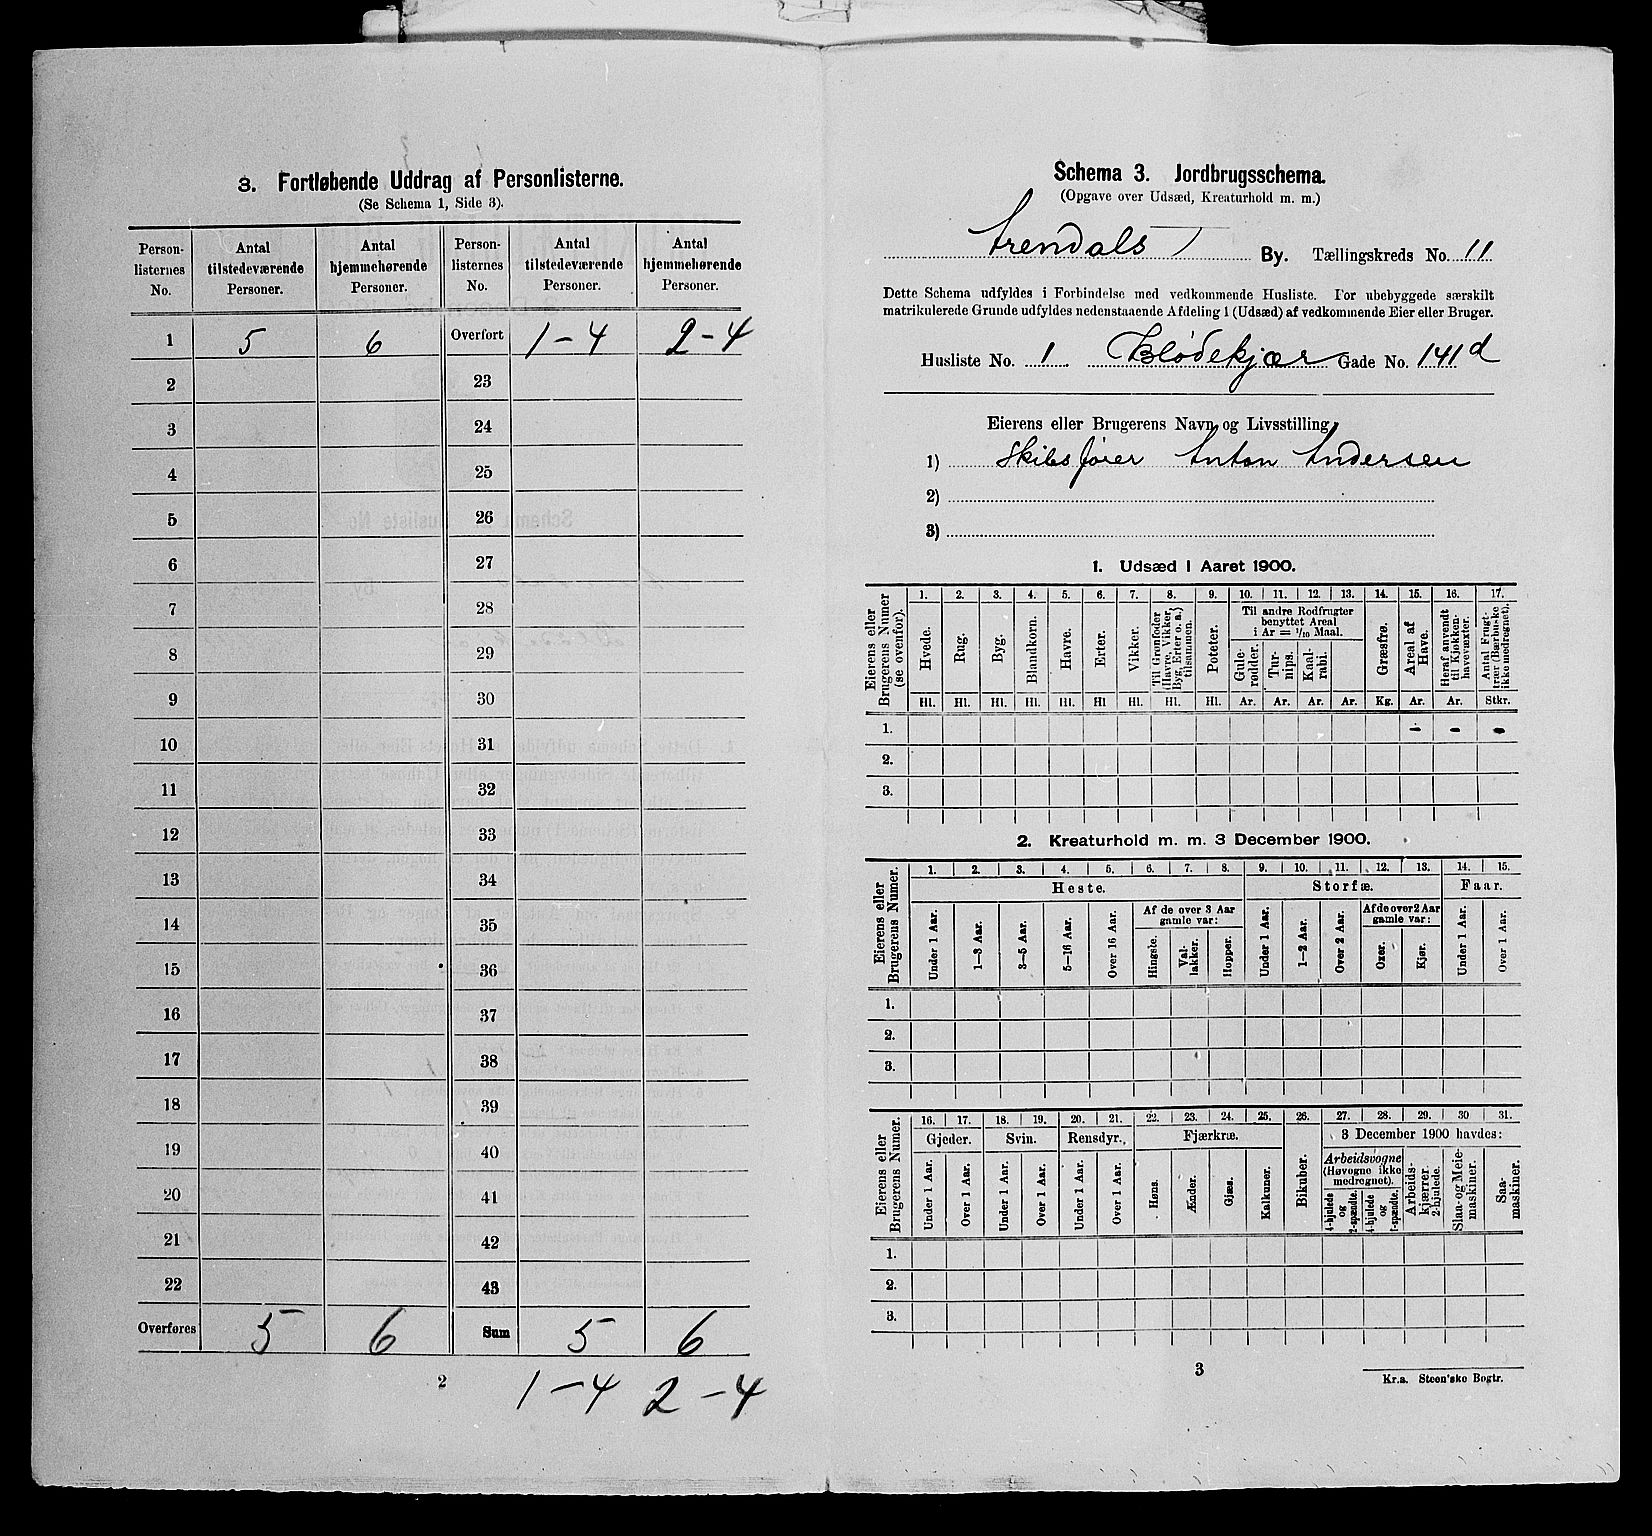 3. Fortløbende Uddrag af Personlisterne.
(Se Schema 1, Side 3).
Person-listernes No. | Antal tilstedeværende Personer. | Antal hjemmehørende Personer. | Person-listernes No. | Antal tilstedeværende Personer. | Antal hjemmehørende Personer.
1 | 5 | 6 | Overført | 1-4 | 2-4
2 | 23
3 | 24
4 | 25
5 | 26
6 | 27
7 | 28
8 | 29
9 | 30
10 | 31
11 | 32
12 | 33
13 | 34
14 | 35
15 | 36
16 | 37
17 | 38
18 | 39
19 | 40
20 | 41
21 | 42
22 | 43
Overføres | 5 | 6 | Sum | 5 | 6
2 1-4 2-4
Schema 3. Jordbrugsschema.
(Opgave over Udsæd, Kreaturhold m. m.)
Arendals By. Tællingskreds No. 11
Dette Schema udfyldes i Forbindelse med vedkommende Husliste. For ubebyggede særskilt
matrikulerede Grunde udfyldes nedenstaaende Afdeling 1 (Udsæd) af vedkommende Eier eller Bruger.
Husliste No. 1. Blødekjær Gade No. 141d
Eierens eller Brugerens Navn og Livsstilling
1) Skibsfører Anton Andersen
2)
3)
1. Udsæd i Aaret 1900.
Eierens eller Brugerens Numer (se ovenfor). | 1. | 2. | 3. | 4. | 5. | 6. | 7. | 8. | 9. | 10. | 11. | 12. | 13. | 14. | 15. | 16. | 17.
Hvede. | Rug. | Byg. | Blandkorn. | Havre. | Erter. | Vikker. | Til Grønfoder (Havre, Vikker, Byg, Erter o. a.) tilsammen. | Poteter. | Til andre Rodfrugter benyttet Areal i Ar = 1/10 Maal. | Gule-rødder. | Tur-nips. | Kaal-rabi. | Græsfrø. | Areal af Have. | Heraf anvendt til Kjøkken-havevæxter. | Antal Frugt-trær (Bærbuske ikke medregnet).
Hl. | Hl. | Hl. | Hl. | Hl. | Hl | Hl. | Hl. | Hl. | Ar. | Ar. | Ar. | Ar. | Kg. | Ar. | Ar. | Stkr.
1. | - | - | -
2.
3.
2. Kreaturhold m. m. 3 December 1900.
Eierens eller Brugerens Numer. | 1. | 2. | 3. | 4. | 5. | 6. | 7. | 8. | 9. | 10. | 11. | 12. | 13. | 14. | 15.
Heste. | Storfæ. | Faar.
Under 1 Aar. | 1—3 Aar. | 3—5 Aar. | 5—16 Aar. | Over 16 Aar. | Af de over 3 Aar gamle var: | Hingste. | Val-lakker. | Hopper. | Under 1 Aar. | 1—2 Aar. | Over 2 Aar. | Af de over 2 Aar gamle var: | Oxer. | Kjør. | Under 1 Aar. | Over 1 Aar.
1.
2.
3.
Eierens eller Brugerens Numer. | 16. | 17. | 18. | 19. | 20. | 21. | 22. | 23. | 24. | 25. | 26. | 27. | 28. | 29. | 30 | 31.
Gjeder. | Svin. | Rensdyr. | Fjærkræ. | Bikuber. | 3 December 1900 havdes:
Under 1 Aar. | Over 1 Aar. | Under 1 Aar. | Over 1 Aar. | Under 1 Aar. | Over 1 Aar. | Høns. | Ænder. | Gjæs. | Kalkuner. | Arbeidsvogne (Høvogne ikke medregnet). | 4-hjulede og 2-spændte. | 4-hjulede og 1-spændte. | Arbeids-kjærrer 2-hjulede. | Slaa- og Meie-maskiner. | Saa-maskiner.
1.
2.
3.
3
Kr.a. Steen'ske Bogtr.